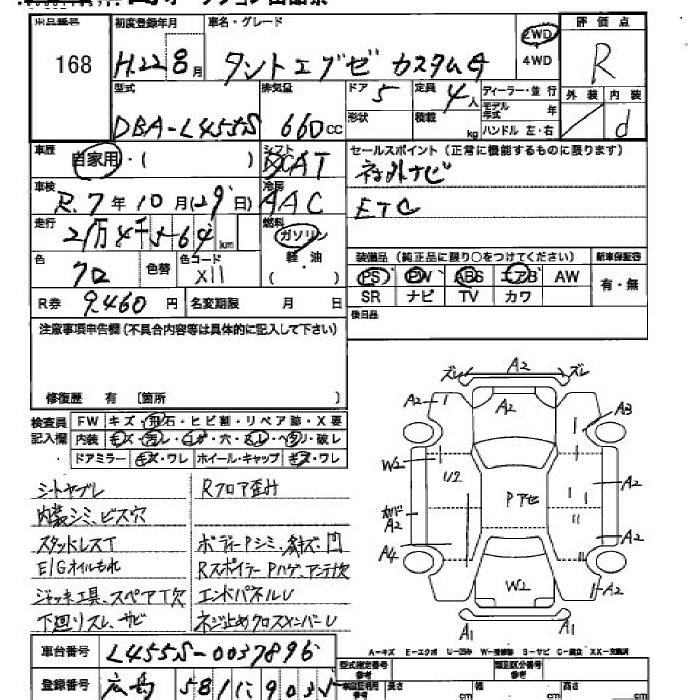 出品番号 初度登録年月 車名・グレード 2WD 4WD 評価点
168 H.22 8月 タントエグゼ カスタムG R
型式 排気量 ドア 5 定員 4人 ディーラー・並行 外装 内装
DBA-L455S 660cc 形状 積載 kg モデル年式 年 ハンドル 左・右 d
車歴 自家用・( ) シフト AT セールスポイント(正常に機能するものに限ります)
社外ナビ
車検 R.7年10月(29日) 冷房 AAC
ETC
走行 2万4千564km 燃料 ガソリン 軽油 ( )
装備品(純正品に限り○をつけてください) 新車保証書
色 クロ 色替 色コード X11
PS PW ABS エアB AW 有・無
SR ナビ TV カワ
R券 9,460円 名変期限 月 日
後日品
注意事項申告欄(不具合内容等は具体的に記入して下さい)
修復歴 有 〔箇所 〕
検査員記入欄 FW キズ・飛石・ヒビ割・リペア跡・X要
内装 キズ・汚レ・コゲ・穴・スレ・ヘタリ・破レ
ドアミラー キズ・ワレ ホイール・キャップ キズ・ワレ
シートヤブレ Rフロア歪汁
内装シミ、ビス穴
スタッドレスT ボディーPシミ、線キズ、凹
E/Gオイルもれ RスポイラーPハゲ、アンテナ欠
ジャッキ工具、スペアT欠 エンドパネルU
下廻リスレ、サビ ネジ止めクロスメンバーU
ズレ A2 ズレ
A2 A2 A3
W2 U2 Pアセ A2
A2
A4 A2
W2 A2
A1 A1
A-キズ E-エクボ U-凹み W-補修跡 S-サビ C-腐食 XX-交換済
車台番号 L455S-0037896
型式指定番号 参考 類別区分番号 参考
登録番号 広島 581 9035
長さ cm cm cm